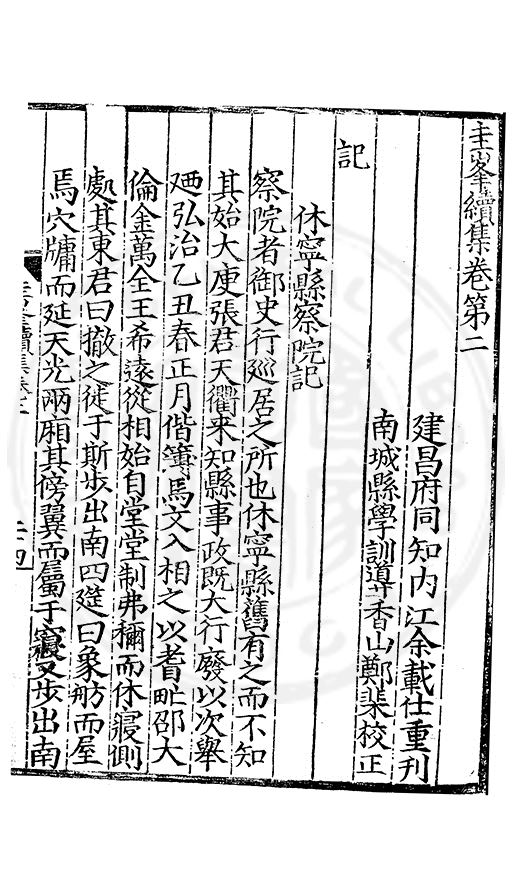 圭峯續集卷第二
建昌府同知內江余載仕重刊
南城縣學訓導香山鄭棐校正
記
休寧縣察院記
察院者御史行廵居之所也休寧縣舊有之而不知
其始大庾張君天衢来知縣事政既大行廢以次舉
廼弘治乙丑春正月偕簿馬文入相之以耆𠃔邵大
倫金萬全王希遠從相始自堂堂制弗稱而休寢側
處其東君曰撤之徒于斯步出南四筵曰象舫而屋
焉穴牗而延天光兩廂其傍翼而屬于寢又步出南